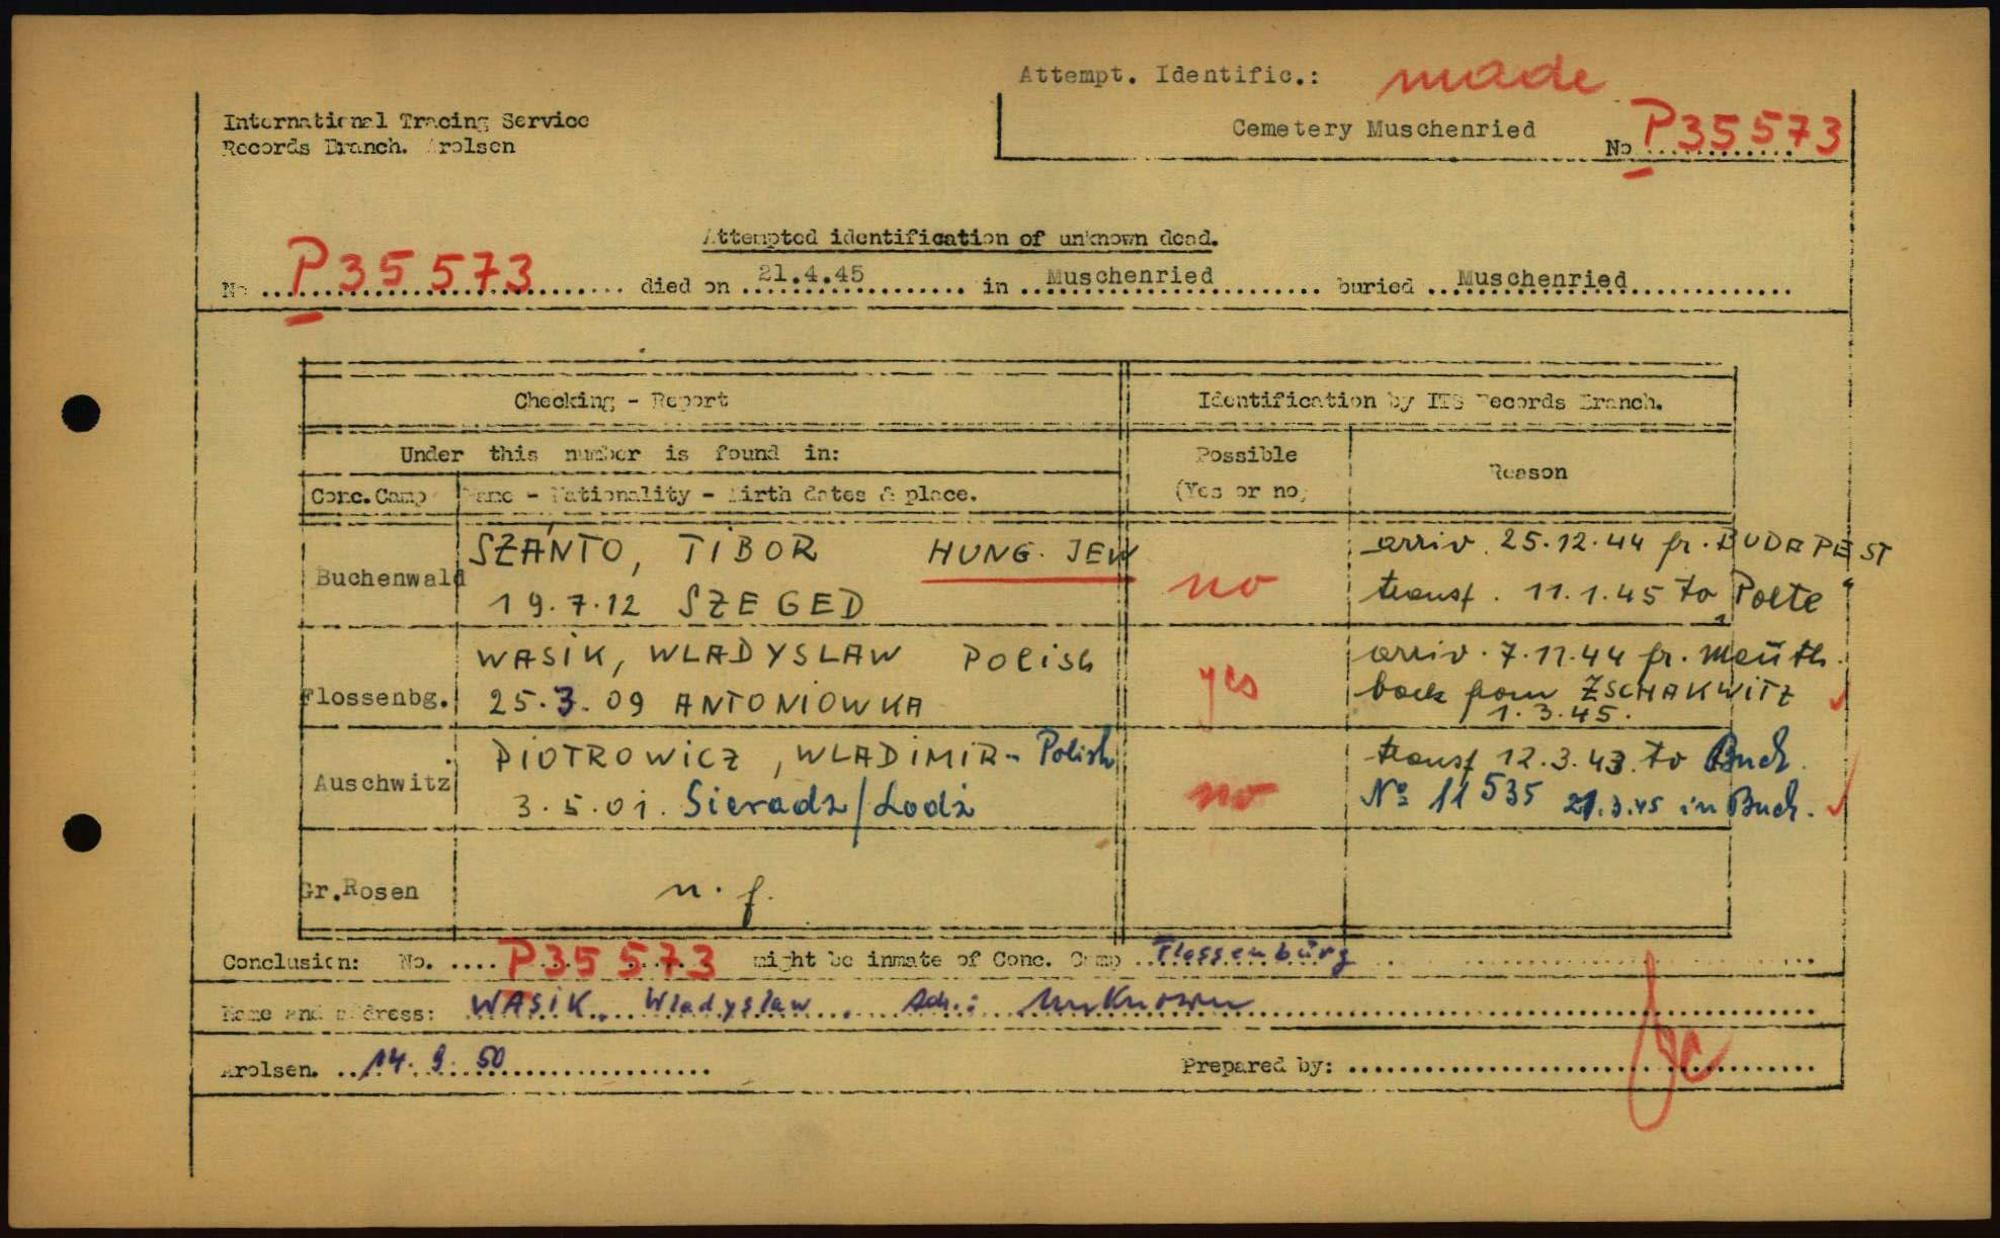 Attempt. Identific.: made
International Tracing Service
Records Branch. Arolsen
Cemetery Muschenried
No P 35 573
Attempted identification of unknown dead.
No P 35 573 died on 21.4.45 in Muschenried buried Muschenried
Checking - Report
Identification by ITS Records Branch.
Under this number is found in:
Possible
(Yes or no)
Reason
Conc. Camp
Name - Nationality - Birth dates & place.
Buchenwald
SZÁNTO, TIBOR HUNG. JEW
19.7.12 SZEGED
no
arriv. 25.12.44 fr. BUDAPEST
transf. 11.1.45 to „Polte"
Flossenbg.
WASIK, WLADYSLAW Polish
25.3.09 ANTONIOWKA
yes
arriv. 7.11.44 fr. Mauth.
back from ZSCHAKWITZ
1.3.45.
Auschwitz
PIOTROWICZ, WLADIMIR - Polish
3.5.01. Sieradz/Lodz
no
transf 12.3.43. to Buch.
No 11 535 21.3.45 in Buch.
Gr.Rosen
n. f.
Conclusion: No. P 35 573 might be inmate of Conc. Camp Flossenbürg
Name and address: WASIK, Wladyslaw. Adr.: Unknown
Arolsen. 14. 9. 50
Prepared by: